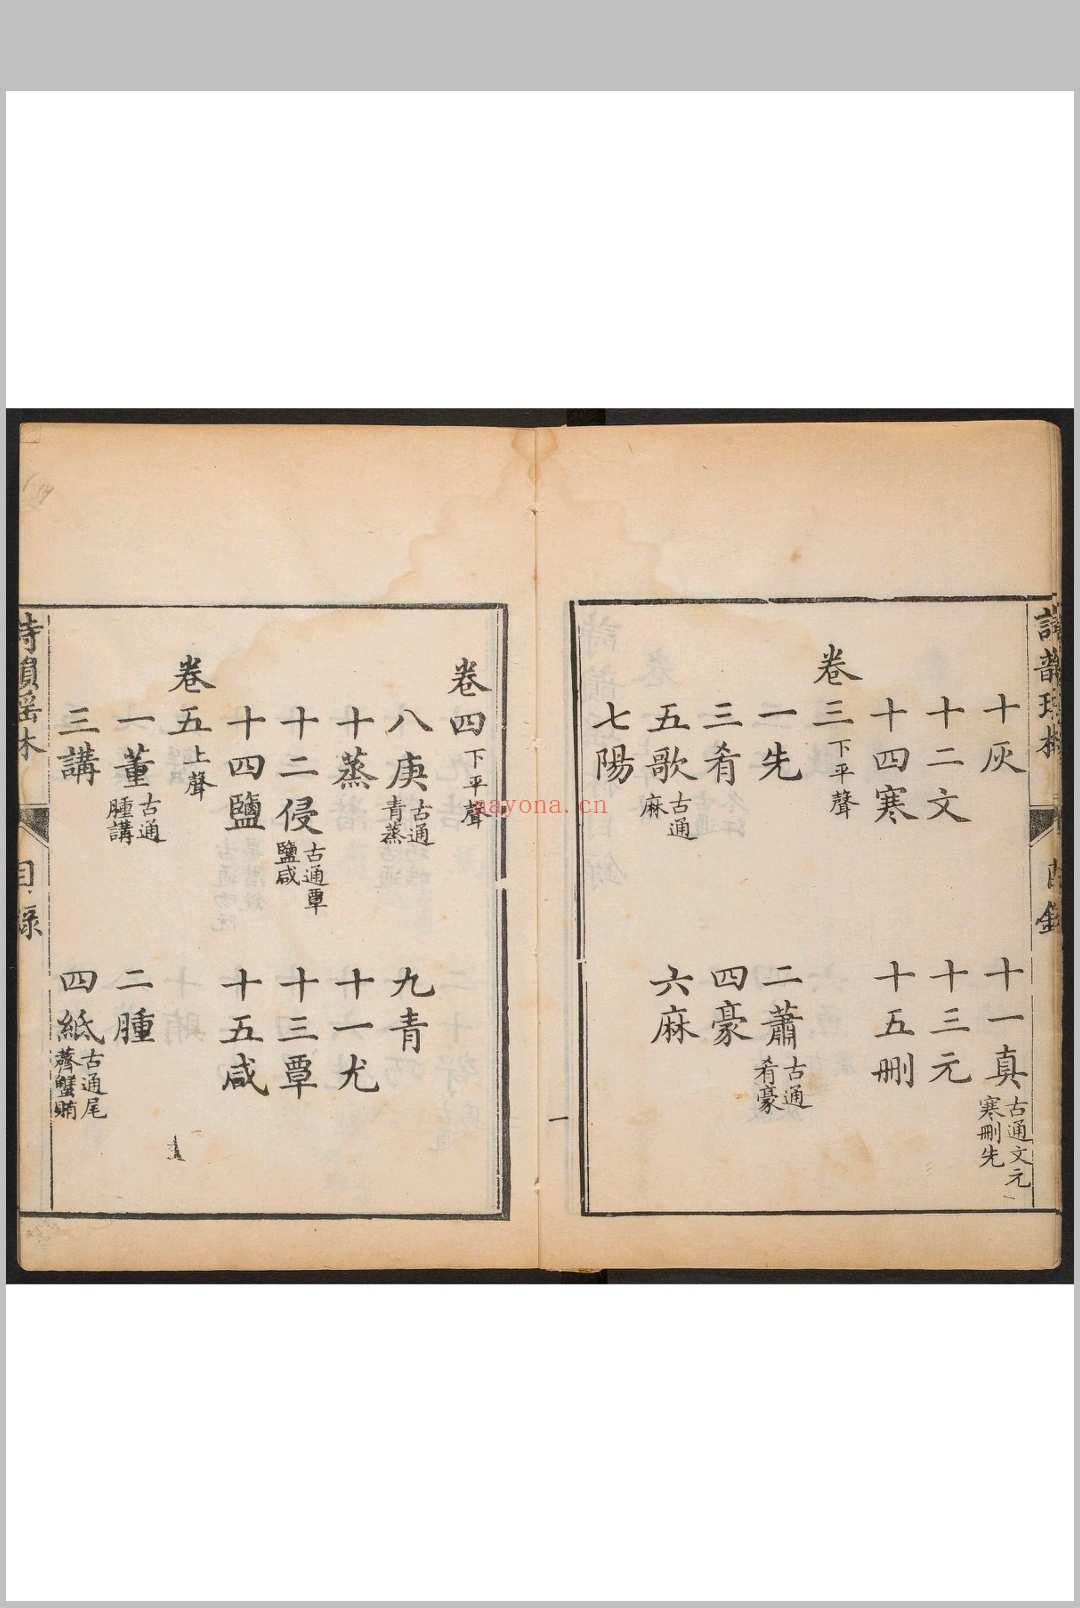 十灰　十一真古通文元寒刪先
十二文　十三元
十四寒　十五刪
卷三下平聲
一先　二蕭古通肴豪
三肴　四豪
五歌古通麻　六麻
七陽
一
卷四下平聲
八庚古通青蒸　九青
十蒸　十一尤
十二侵古通覃鹽咸　十三覃
十四鹽　十五咸
卷五上聲
一董古通腫講　二腫
三講　四紙古通尾薺蟹賄
目錄
nayona.cn